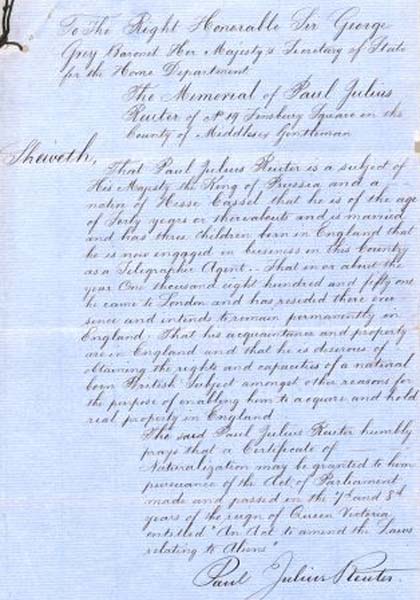 To The Right Honorable Sir George
Grey Baronet Her Majesty's Secretary of State
for the Home Department
The Memorial of Paul Julius
Reuter of No 19 Finsbury Square in the
County of Middlesex Gentleman
Sheweth,
That Paul Julius Reuter is a subject of
His Majesty the King of Prussia and a
native of Hesse Cassel that he is of the age
of Forty years or thereabouts and is married
and has three children born in England that
he is now engaged in business in this Country
as a Telegraphic Agent .. That in or about the
year One thousand eight hundred and fifty one
he came to London and has resided there ever
since and intends to remain permanently in
England. That his acquaintance and property
are in England and that he is desirous of
obtaining the rights and capacities of a natural
born British Subject amongst other reasons for
the purpose of enabling him to acquire and hold
real property in England
The said Paul Julius Reuter humbly
prays that a Certificate of
Naturalization may be granted to him
pursuance of the Act of Parliament
made and passed in the 7th and 8th
years of the reign of Queen Victoria
entitled "An Act to amend the Laws
relating to Aliens"
Paul Julius Reuter.